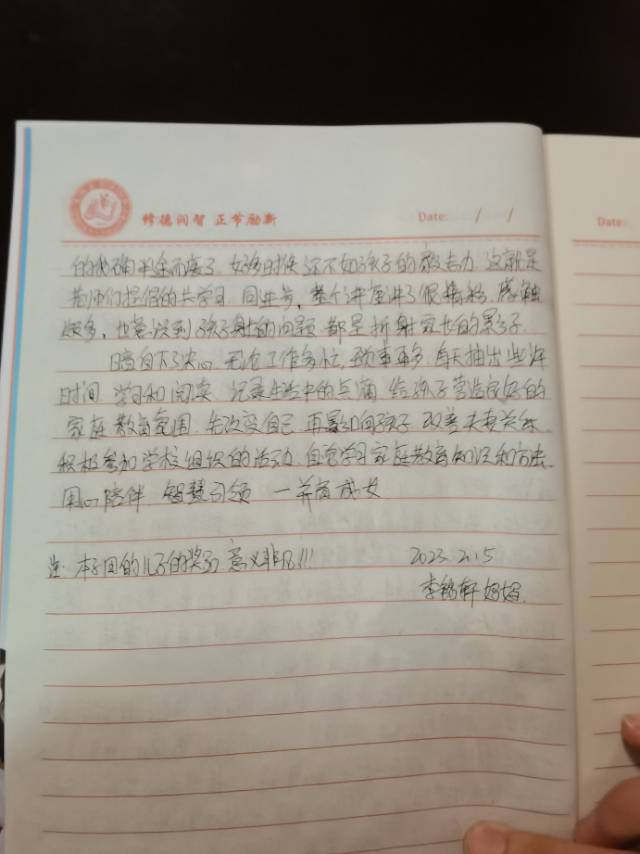 修德润智 正节励新
Date: / /
Date:
的我确半途而废了 好多时候还不如孩子的毅力 这就是
老师们提倡的共学习 同进步，整个讲座讲了很精彩 感触
很多，也意识到了孩子身上的问题 都是折射家长的影子.
暗自下了决心 无论工作多忙，琐事再多，每天抽出些许
时间 学习和阅读 记录生活中的点滴 给孩子营造良好的
家庭教育氛围 先改变自己 再影响孩子 改善夫妻关系
积极参加学校组织的活动 自觉学习家庭教育知识和方法.
用心陪伴 智慧引领 一并育成长
注 本子因的儿子的奖励 意义非凡!!!
2023.2.15
李 轩妈妈.